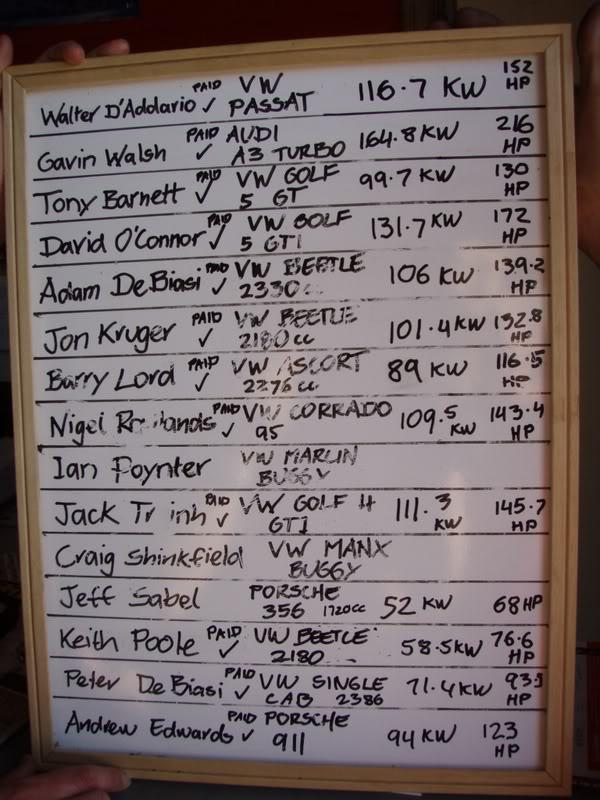 Walter D'Addario PAID ✓ VW PASSAT 116.7 KW 152 HP
Gavin Walsh PAID ✓ AUDI A3 TURBO 164.8 KW 216 HP
Tony Barnett PAID ✓ VW GOLF 5 GT 99.7 KW 130 HP
David O'Connor PAID ✓ VW GOLF 5 GTI 131.7 KW 172 HP
Adam DeBiasi PAID ✓ VW BEETLE 2330cc 106 KW 139.2 HP
Jon Kruger PAID ✓ VW BEETLE 2180cc 101.4 KW 132.8 HP
Barry Lord PAID ✓ VW ASCORT 2276cc 89 KW 116.5 HP
Nigel PAID ✓ VW CORRADO 95 109.5 KW 143.4 HP
Ian Poynter VW MARLIN BUGGY
Jack PAID ✓ VW GOLF 4 GTI 111.3 KW 145.7 HP
Craig Shinkfield VW MANX BUGGY
Jeff Sabel PORSCHE 356 1720cc 52 KW 68 HP
Keith Poole PAID ✓ VW BEETLE 2180 58.5 KW 76.6 HP
Peter De Biasi PAID ✓ VW SINGLE CAB 2386 71.4 KW 93.5 HP
Andrew Edwards PAID ✓ PORSCHE 911 94 KW 123 HP